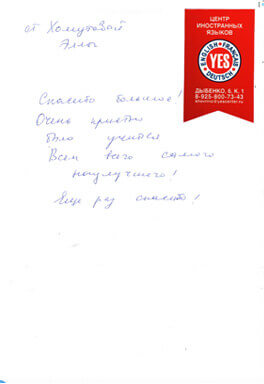 от Хомутовой
Эллы
ЦЕНТР
ИНОСТРАННЫХ
ЯЗЫКОВ
ENGLISH • FRANÇAIS
YES
DEUTSCH
ДЫБЕНКО, 6, К. 1
8-925-800-73-43
khovrino@yescenter.ru
Спасибо большое!
Очень приятно
было учиться
Всем всего самого
наилучшего!
Еще раз спасибо!